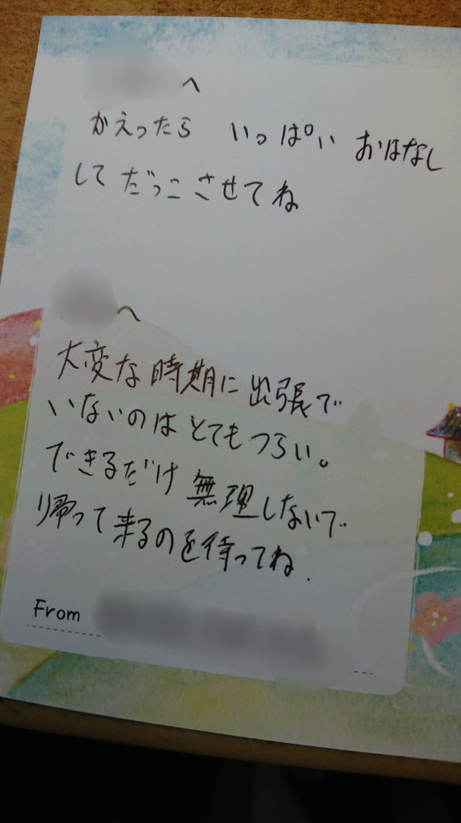 へ
かえったら いっぱい おはなし
して だっこ させてね
へ
大変な時期に出張で
いないのはとてもつらい。
できるだけ無理しないで
帰って来るのを待っててね.
From